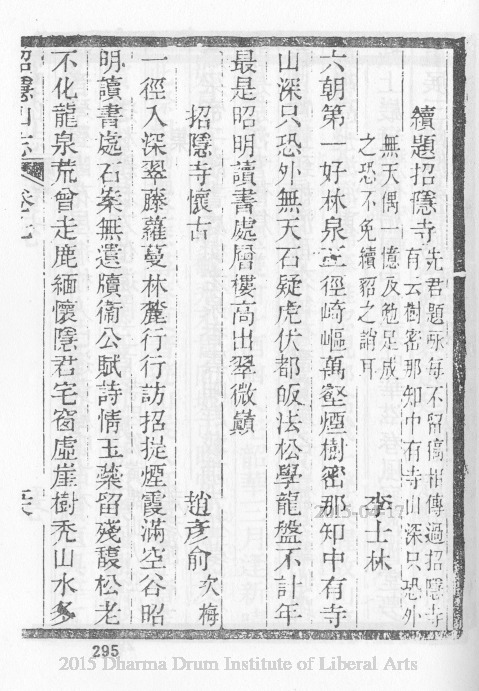 續題招隱寺 先君題詠每不留稿相傳過招隱寺
有云樹密那知中有寺山深只恐外
無天偶一憶及勉足成
之恐不免續貂之誚耳
李士林
六朝第一好林泉 徑崎嶇萬壑煙樹密那知中有寺
山深只恐外無天石疑虎伏都皈法松學龍盤不計年
最是昭明讀書處層樓高出翠微巔
招隱寺懷古 趙彥俞 次梅
一徑入深翠藤蘿蔓林麓行行訪招提煙霞滿空谷昭
明讀書處石案無遺牘衞公賦詩情玉蘂留殘馥松老
不化龍泉荒曾走鹿緬懷隱君宅窗虛崖樹禿山水多
招隱山志 卷七
295
2015-04-17
2015 Dharma Drum Institute of Liberal Arts